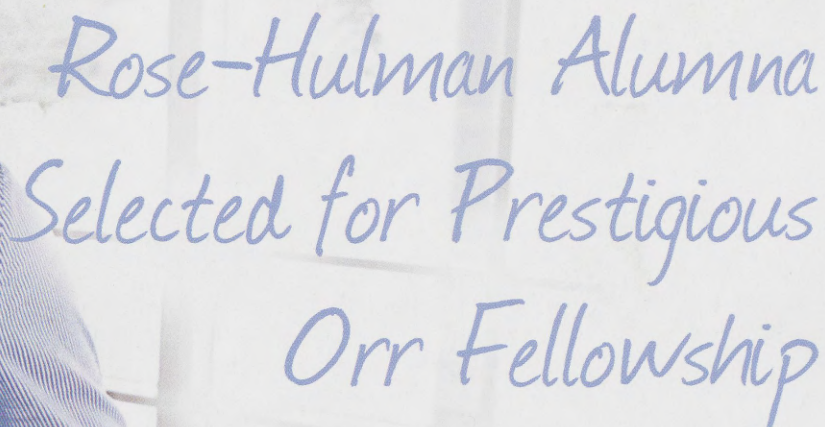 Rose-Hulman Alumna
Selected for Prestigious
Orr Fellowship